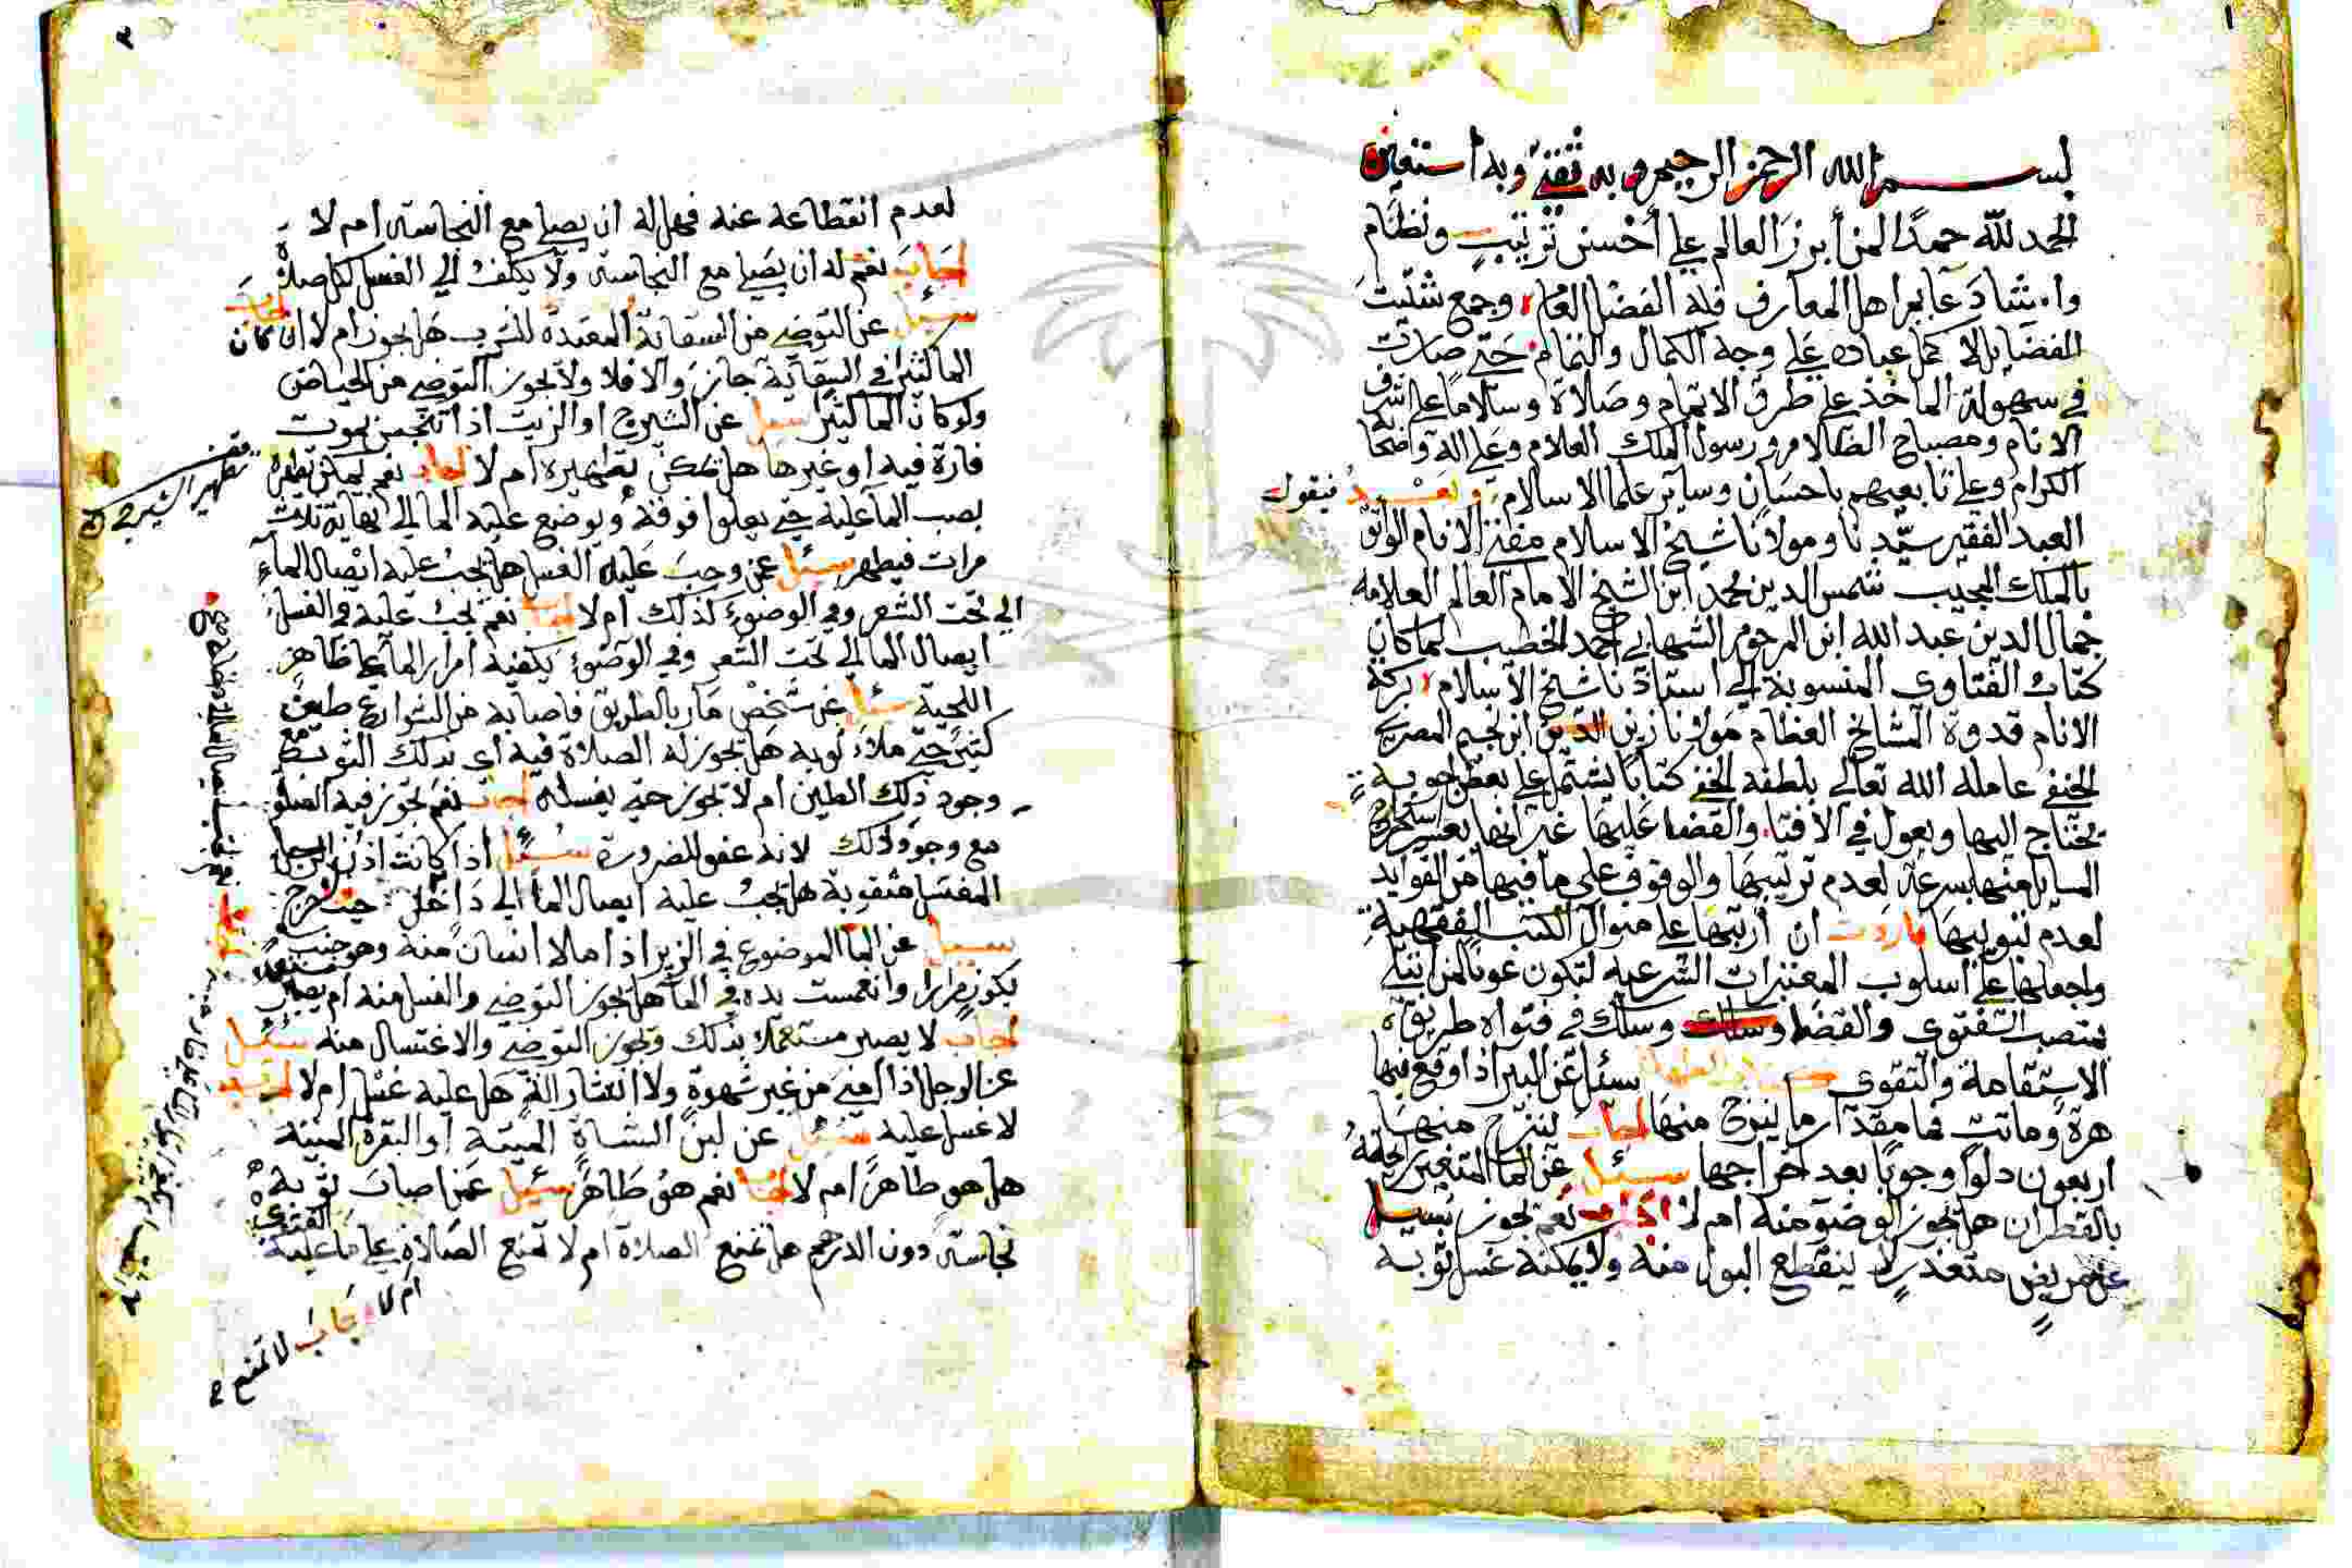 ١
بسم الله الرحمن الرحيم وبه ثقتي وبه استعين
الحمد لله حمدًا لمن أبرز العالم علي أحسن ترتيب ونظام
وا شاد عابم اهل المعارف فله الفضل العام وجمع شتيت
الفضايل لا كمل عباده علي وجه الكمال والتمام حتي صارت
في سهولة الماخذ علي طرق الاتمام وصلاة وسلاما علي اشرف
الانام ومصباح الظلام ورسول الملك العلام وعلي اله واصحابه
الكرام وعلي تابعيهم باحسان وساير علما الاسلام وبعد فيقول
العبد الفقير سيدنا ومولانا شيخ الاسلام مفتي الانام الواثق
بالملك المجيب شمس الدين محمد ابن الشيخ الامام العالم العلامه
جمال الدين عبد الله ابن المرحوم الشهابي احمد الخطيب لما كان
كتاب الفتاوى المنسوبة الي استاذنا شيخ الاسلام بركة
الانام قدوة المشايخ العظام مولانا زين الدين ابن نجيم المصري
الحنفي عامله الله تعالي بلطفه الخفي كتابا يشتمل علي بعض اجوبة
يحتاج اليها ويعول في الافتا والقضا عليها غير انها يعسر استخراج
المسايل منها بسرعة لعدم ترتيبها والوقوف علي ما فيها من الفوايد
لعدم تبويبها فاردت ان ارتبها علي منوال الكتب الفقهية
واجعلها علي اسلوب المعتبرات الشرعيه لتكون عونا لمن ابتلي
بمنصب الفتوى والقضا وسلك وسلك في فتواه طريقة
الاستقامة والتقوى كتاب الطهارة سئل عن البير اذا وقع فيها
هرة وماتت فما مقدار ما ينزح منها اجاب ينزح منها
اربعون دلوا وجوبا بعد اخراجها سئل عن الما المتغير رائحته
بالقطران هل يجوز الوضؤ منه ام لا اجاب نعم يجوز سئل
عن مريض متعذر لا ينقطع البول منه ولا يمكنه غسل ثوبه
٢
لعدم انقطاعه عنه فهل له ان يصلي مع النجاسة ام لا
اجاب نعم له ان يصلي مع النجاسة ولا يكلف الي الغسل لكل صلاة
سئل عن التوضي من السقاية المعدة للشرب هل يجوز ام لا اجاب ان كان
الما كثيرا في السقاية جاز والا فلا ولا يجوز التوضي من الحياض
ولو كان الما كثيرا سئل عن الشيرج او الزيت اذا تنجس بموت
فارة فيه او غيرها هل يمكن تطهيره ام لا اجاب نعم يمكن تطهيره
بصب الما عليه حتي يعلوا فوقه ويوضع عليه الما الي نهاية ثلاث
مرات فيطهر سئل عن وجب عليه الغسل هل يجب عليه ايصال الماء
الي تحت الشعر وفي الوضوء كذلك ام لا اجاب نعم يجب عليه في الغسل
ايصال الما الي تحت الشعر وفي الوضوء يكفيه امرار الما علي ظاهر
اللحية سئل عن شخص مار بالطريق فاصابه من الشوارع طين
كثير حتي ملاء ثوبه هل يجوز له الصلاة فيه اى بذلك الثوب مع
وجود ذلك الطين ام لا يجوز حتي يغسله اجاب نعم تجوز فيه الصلوة
مع وجود ذلك لانه عفو للضرورة سئل اذا كانت اذن الرجل
المغتسل مثقوبة هل يجب عليه ايصال الما الي داخل
سئل عن الما الموضوع في الزير اذا ملا انسان منه وهو جنب
بكوز مرارا وانغمست يده في الماء هل يجوز التوضي والغسل منه ام يصير مستعملا
اجاب لا يصير مستعملا بذلك وتجوز التوضي والاغتسال منه سئل
عن الرجل اذا امني من غير شهوة ولا انتشار الة هل عليه غسل ام لا اجاب
لا غسل عليه سئل عن لبن الشاة الميتة او البقرة الميتة
هل هو طاهر ام لا اجاب نعم هو طاهر سئل عمن اصاب ثوبه
نجاسة دون الدرهم هل تمنع الصلاة ام لا تمنع الصلاة علي ما عليه الفتوى
ام لا اجاب لا تمنع
تطهير الشيرج